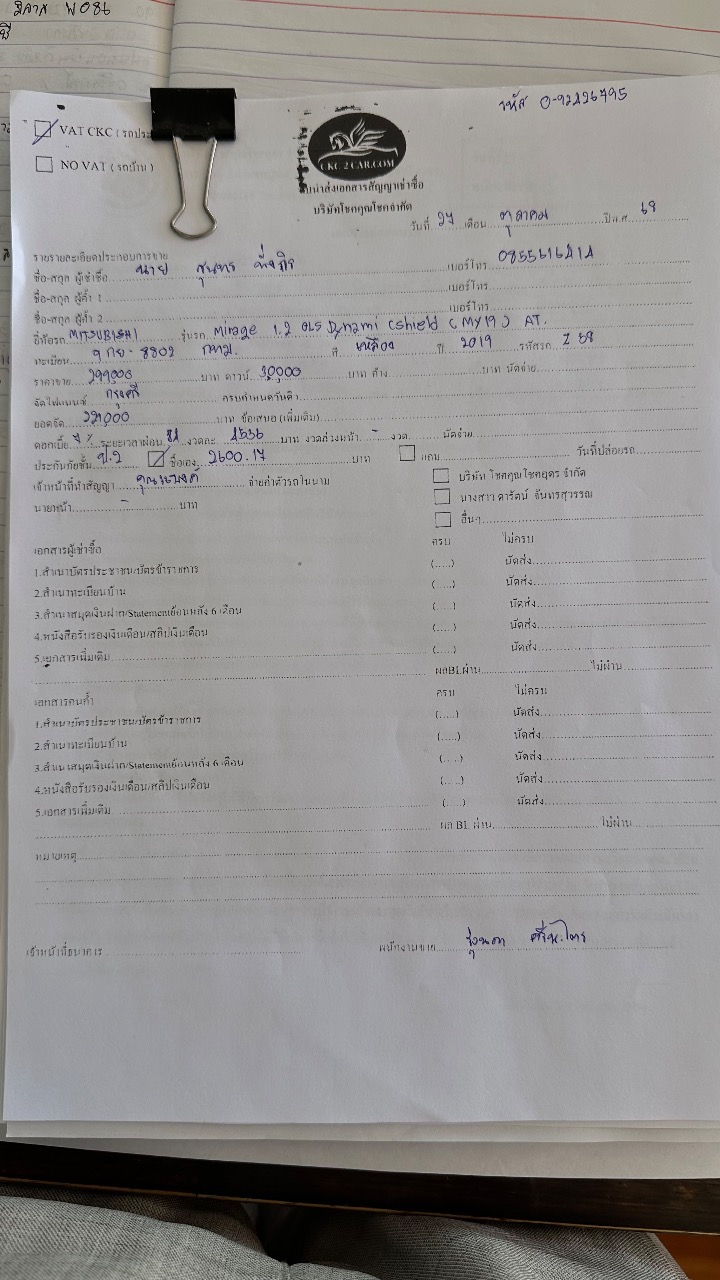 VAT CKC ( รถประ
รหัส 0-92426795
NO VAT ( รถบ้าน )
CKC 2 CAR.COM
ใบนำส่งเอกสารสัญญาเช่าซื้อ
บริษัทโชคคูณโชคจำกัด
วันที่ 27 เดือน ตุลาคม ปีพ.ศ. 68
รายรายละเอียดประกอบการขาย
ชื่อ-สกุล ผู้เช่าซื้อ นาย สุนทร เบอร์โทร 0855616414
ชื่อ-สกุล ผู้ค้ำ 1 เบอร์โทร
ชื่อ-สกุล ผู้ค้ำ 2 เบอร์โทร
ยี่ห้อรถ MITSUBISHI รุ่นรถ Mirage 1.2 GLS Dynamic Cshield (MY19) AT.
ทะเบียน 9 กย-8802 กทม. สี เหลือง ปี 2019 รหัสรถ Z 58
ราคาขาย 299,000 บาท ดาวน์ บาท ค้าง บาท นัดจ่าย
จัดไฟแนนซ์ กรุงศรี ครบกำหนดวันที่
ยอดจัด บาท ข้อเสนอ (เพิ่มเติม)
ดอกเบี้ย % ระยะเวลาผ่อน 84 งวดละ 4556 บาท งวดล่วงหน้า - งวด นัดจ่าย
ประกันภัยชั้น ป.2 ซื้อเอง 2600.14 บาท แถม วันที่ปล่อยรถ
เจ้าหน้าที่ทำสัญญา จ่ายค่าตัวรถในนาม บริษัท โชคคูณโชคยูคร จำกัด
นายหน้า - บาท นางสาว ดารัตน์ จันทรสุวรรณ
อื่นๆ
เอกสารผู้เช่าซื้อ ครบ ไม่ครบ
1.สำเนาบัตรประชาชน/บัตรข้าราชการ (.....) นัดส่ง
2.สำเนาทะเบียนบ้าน (.....) นัดส่ง
3.สำเนาสมุดเงินฝาก/Statementย้อนหลัง 6 เดือน (.....) นัดส่ง
4.หนังสือรับรองเงินเดือน/สลิปเงินเดือน (.....) นัดส่ง
5.เอกสารเพิ่มเติม (.....) นัดส่ง
ผลBLผ่าน ไม่ผ่าน
เอกสารคนค้ำ ครบ ไม่ครบ
1.สำเนาบัตรประชาชน/บัตรข้าราชการ (.....) นัดส่ง
2.สำเนาทะเบียนบ้าน (.....) นัดส่ง
3.สำเนาสมุดเงินฝาก/Statementย้อนหลัง 6 เดือน (.....) นัดส่ง
4.หนังสือรับรองเงินเดือน/สลิปเงินเดือน (.....) นัดส่ง
5.เอกสารเพิ่มเติม (.....) นัดส่ง
ผล BL ผ่าน ไม่ผ่าน
หมายเหตุ
เจ้าหน้าที่ธนาคาร พนักงานขาย